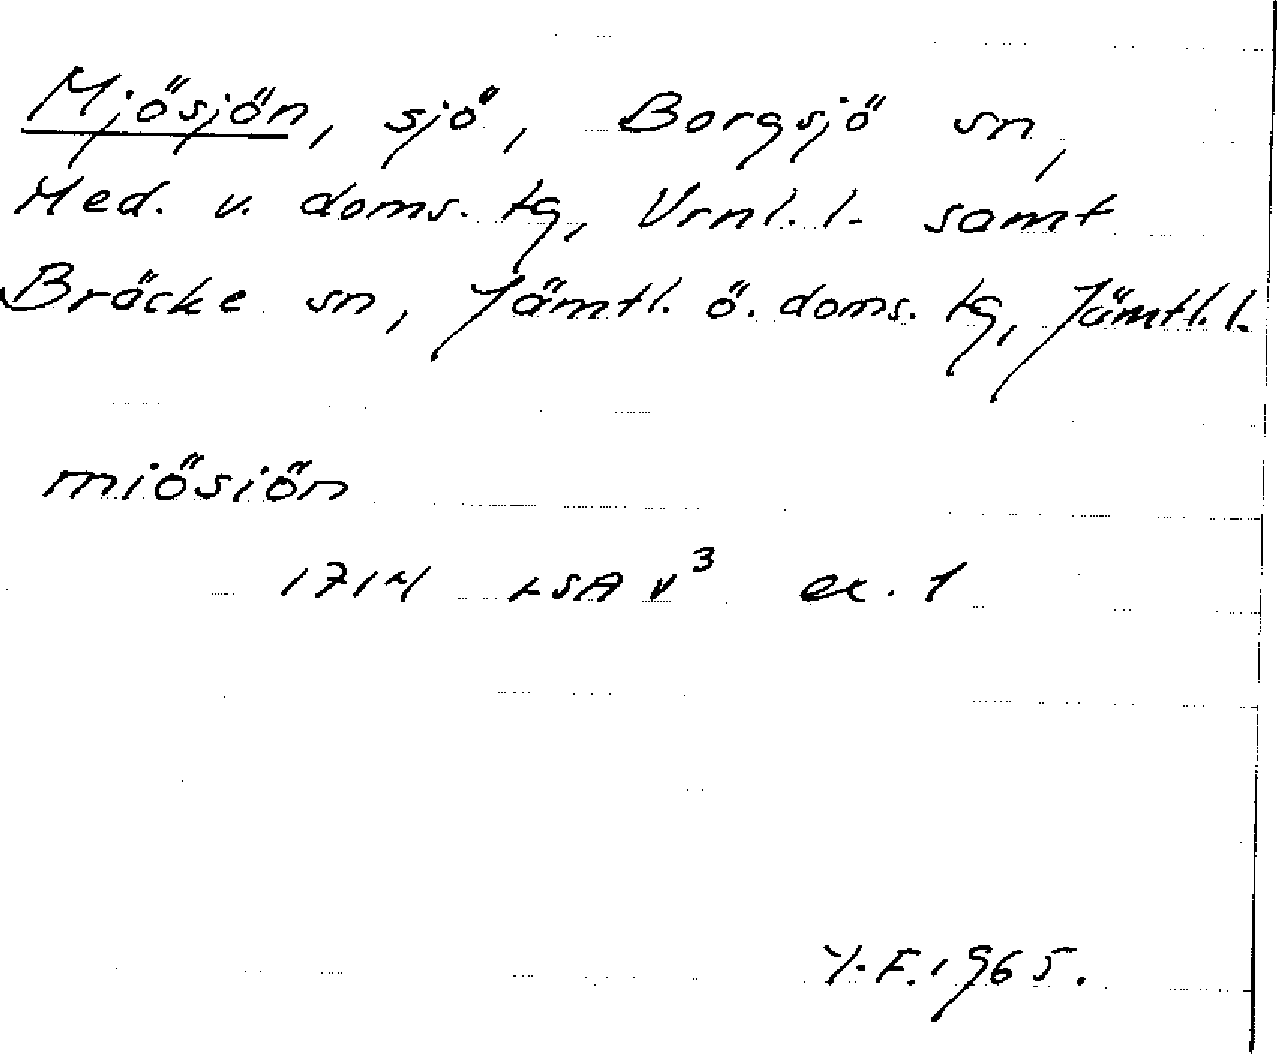 Mjösjön, sjö, Borgsjö sn,
Med. v. doms. tg, Vrnl. l. samt
Bräcke sn, Jämtl. ö. doms. tg, Jämtl. l.
miösiön
1714 LSA v³ ex. 1
Y. F. 1965.